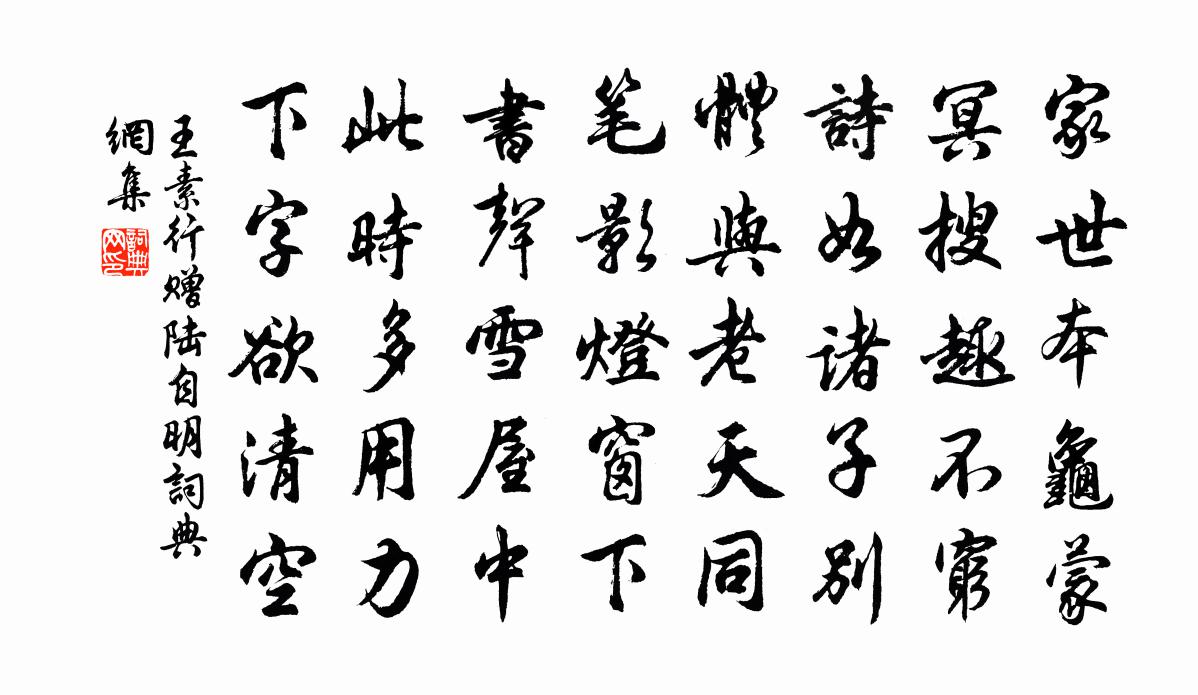 家世本龜蒙
冥搜趣不窮
詩如諸子別
體與老天同
笔影燈窗下
書聲雪屋中
此時多用力
下字欲清空
王素行赠陆自明詞典
網集
詞典
网印